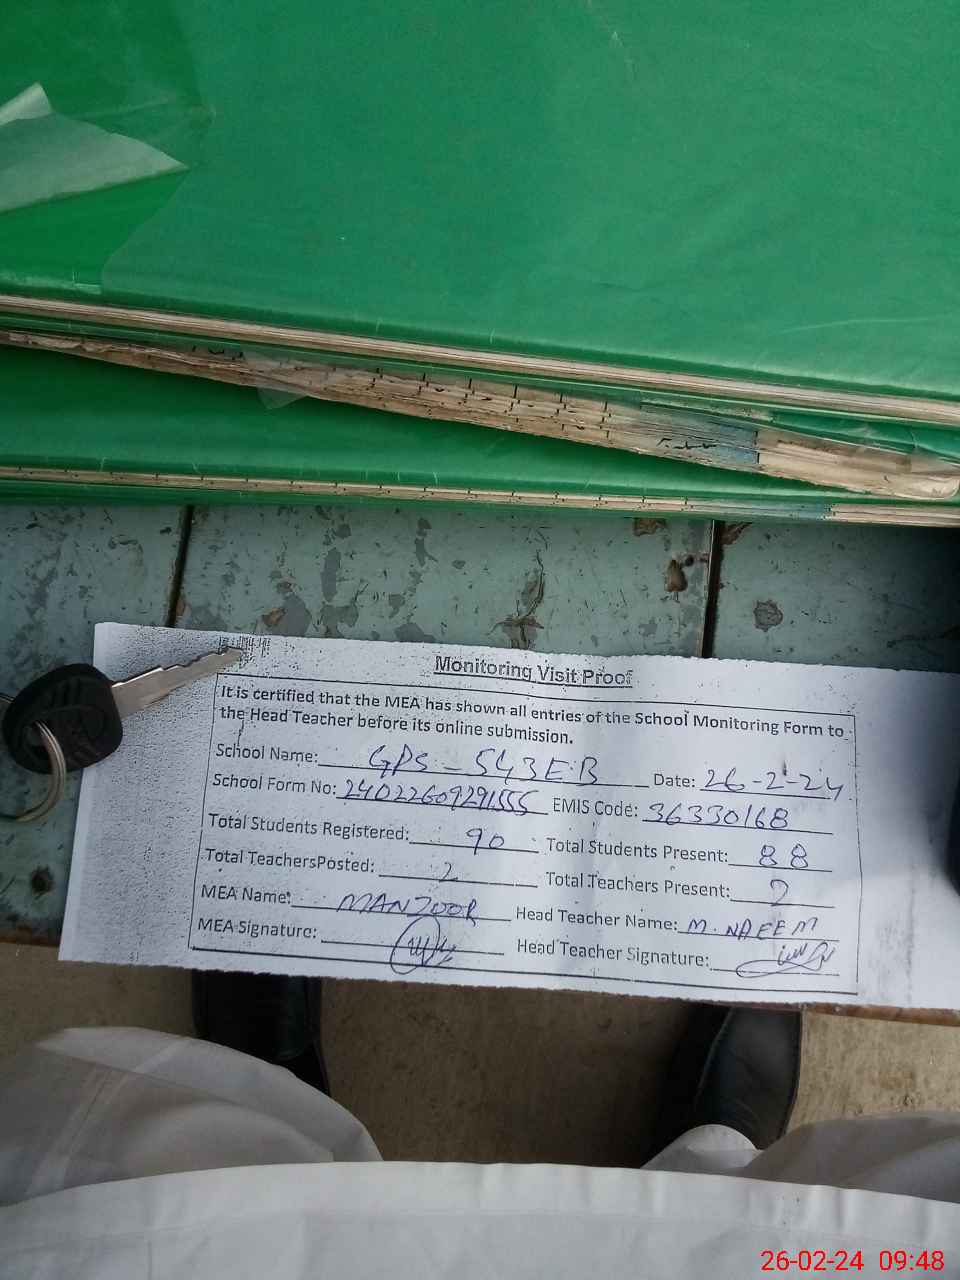 سلسلہ نمبر
Monitoring Visit Proof
It is certified that the MEA has shown all entries of the School Monitoring Form to
the Head Teacher before its online submission.
School Name: GPS - 543 E.B Date: 26-2-24
School Form No: 24022609291555 EMIS Code: 36330168
Total Students Registered: 90 Total Students Present: 88
Total TeachersPosted: 2 Total Teachers Present: 2
MEA Name: MANZOOR Head Teacher Name: M. NAEEM
MEA Signature: Head Teacher Signature:
26-02-24 09:48